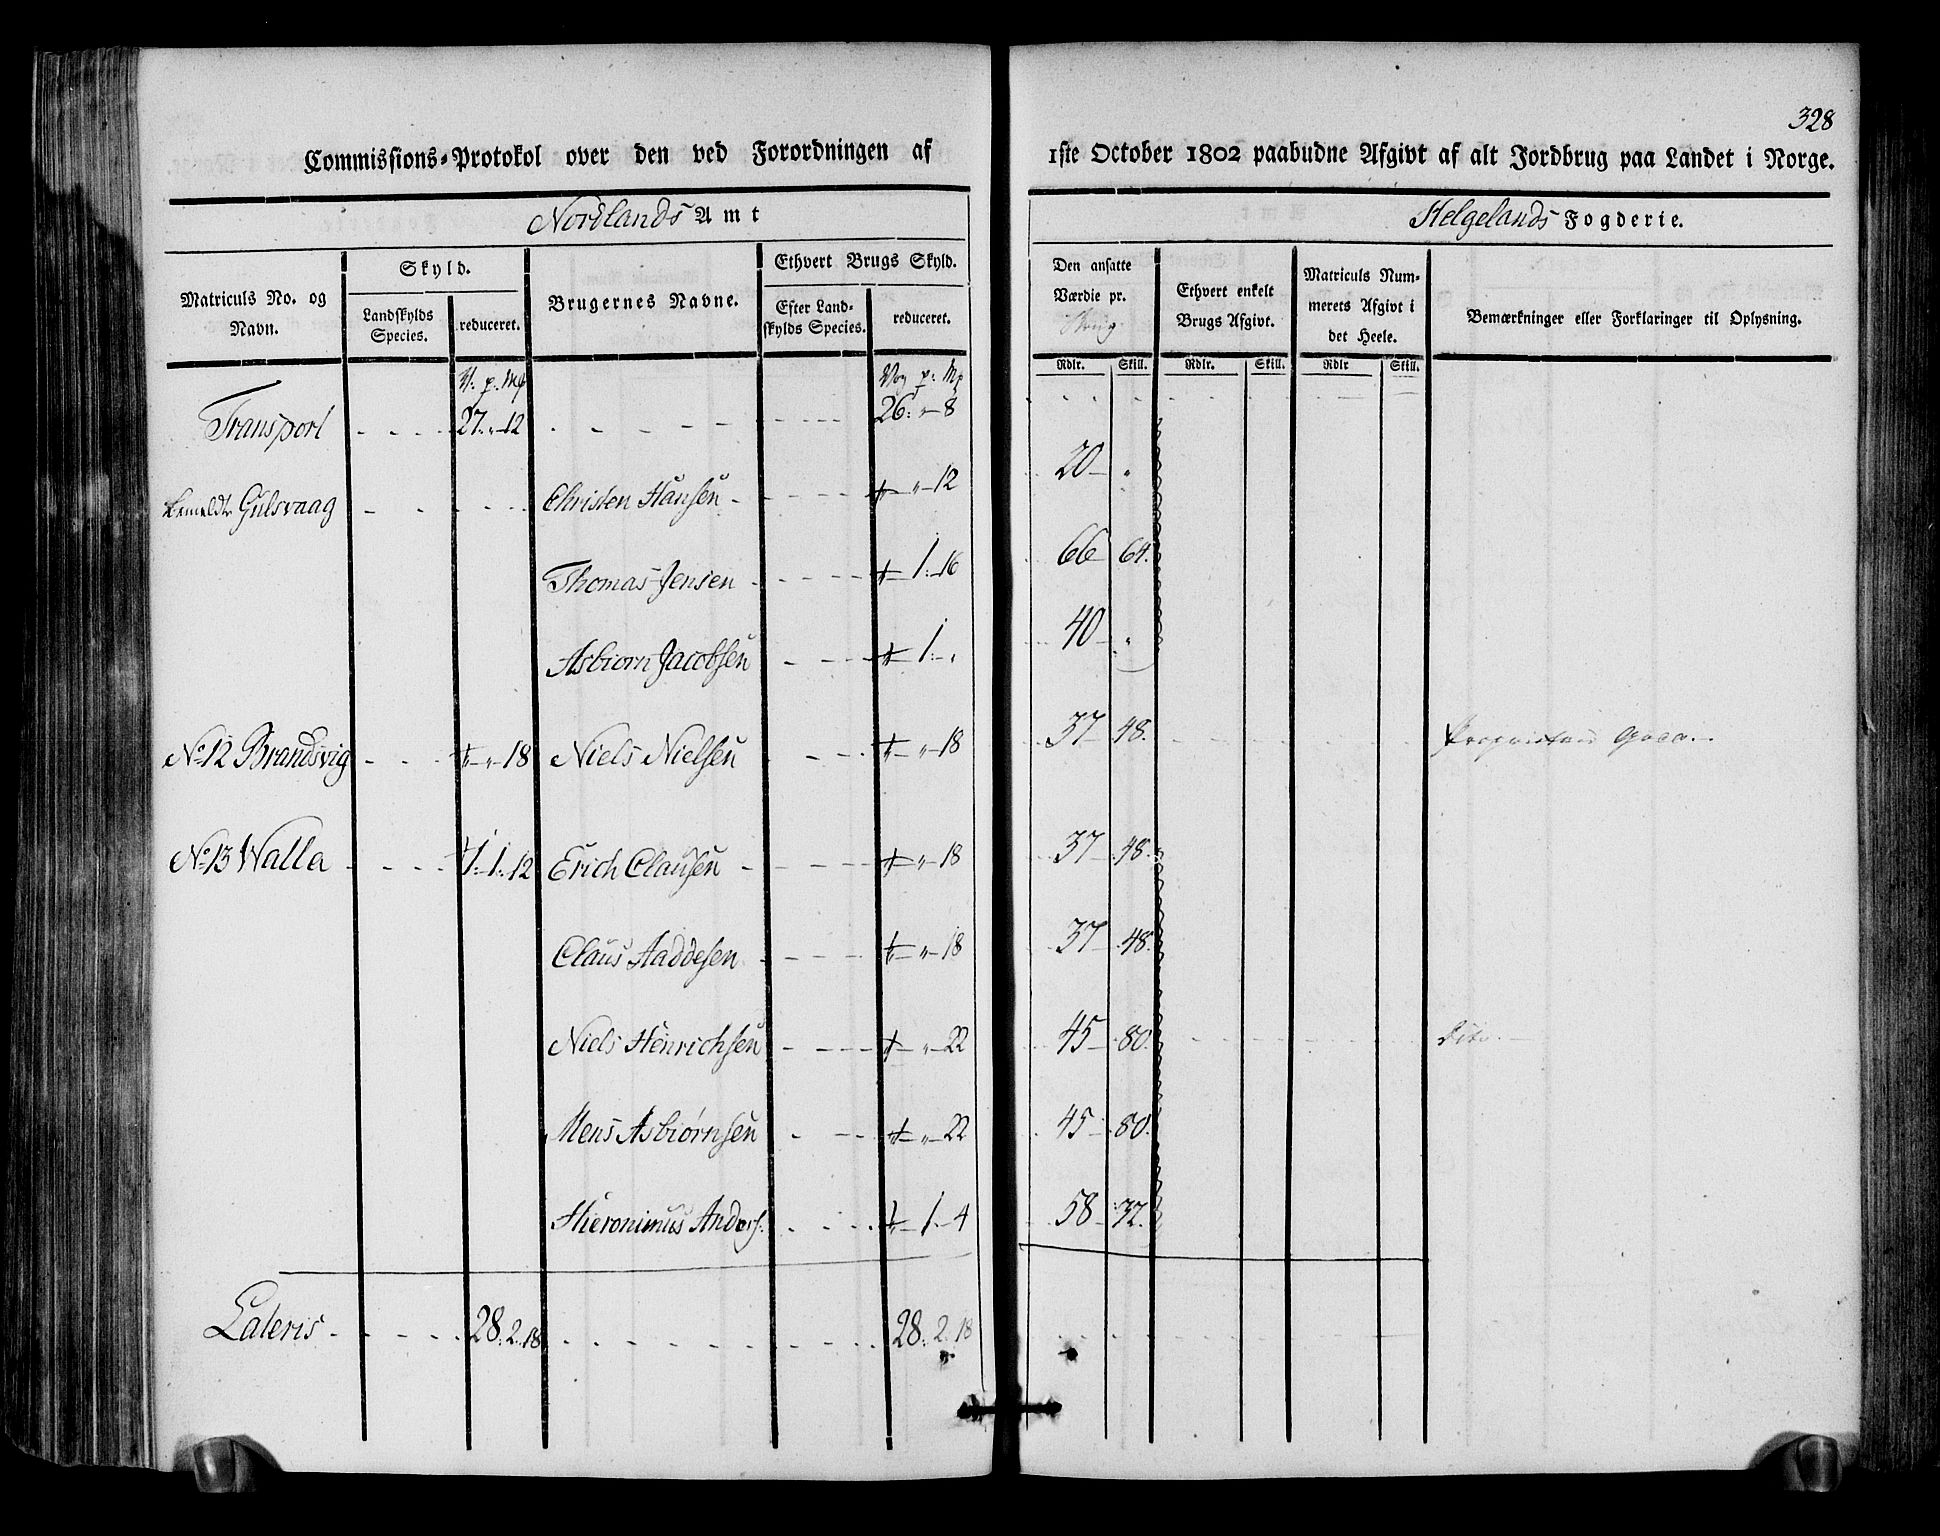 328
Commissions-Protokol over den ved Forordningen af 1ste October 1802 paabudne Afgivt af alt Jordbrug paa Landet i Norge.
Nordlands Amt Helgelands Fogderie.
Matriculs No. og Navn. Skyld. Landskylds Species. reduceret. Brugernes Navne. Ethvert Brugs Skyld. Efter Landskylds Species. reduceret. Den ansatte Værdie pr. Ethvert enkelt Brugs Afgivt. Matriculs Nummerets Afgivt i det Heele. Bemærkninger eller Forklaringer til Oplysning.
Rdlr. Skill. Rdlr. Skill. Rdlr Skill.
V: p: Mk Vog p: Mk
Transport 27. „ 12 26: „ 8
Gulsvaag Christen Hansen „ „ 12 20 „
Thomas Jensen „ 1: 16 66 64.
Asbiorn Jacobsen „ 1: „ 40 „
No. 12 Brandsvig „ „ 18 Niels Nielsen „ „ 18 37 48.
No. 13 Walla 1: 1: 12 Erich Clausen „ „ 18 37 48.
Claus Aaddesen „ „ 18 37 48.
Niels Henrichsen „ „ 22 45 80. Dito.
Mens Asbiørnsen „ „ 22 45 80.
Hieronimus Anders: „ 1 4 58 32.
Lateris 28. 2. 18 28. 2. 18